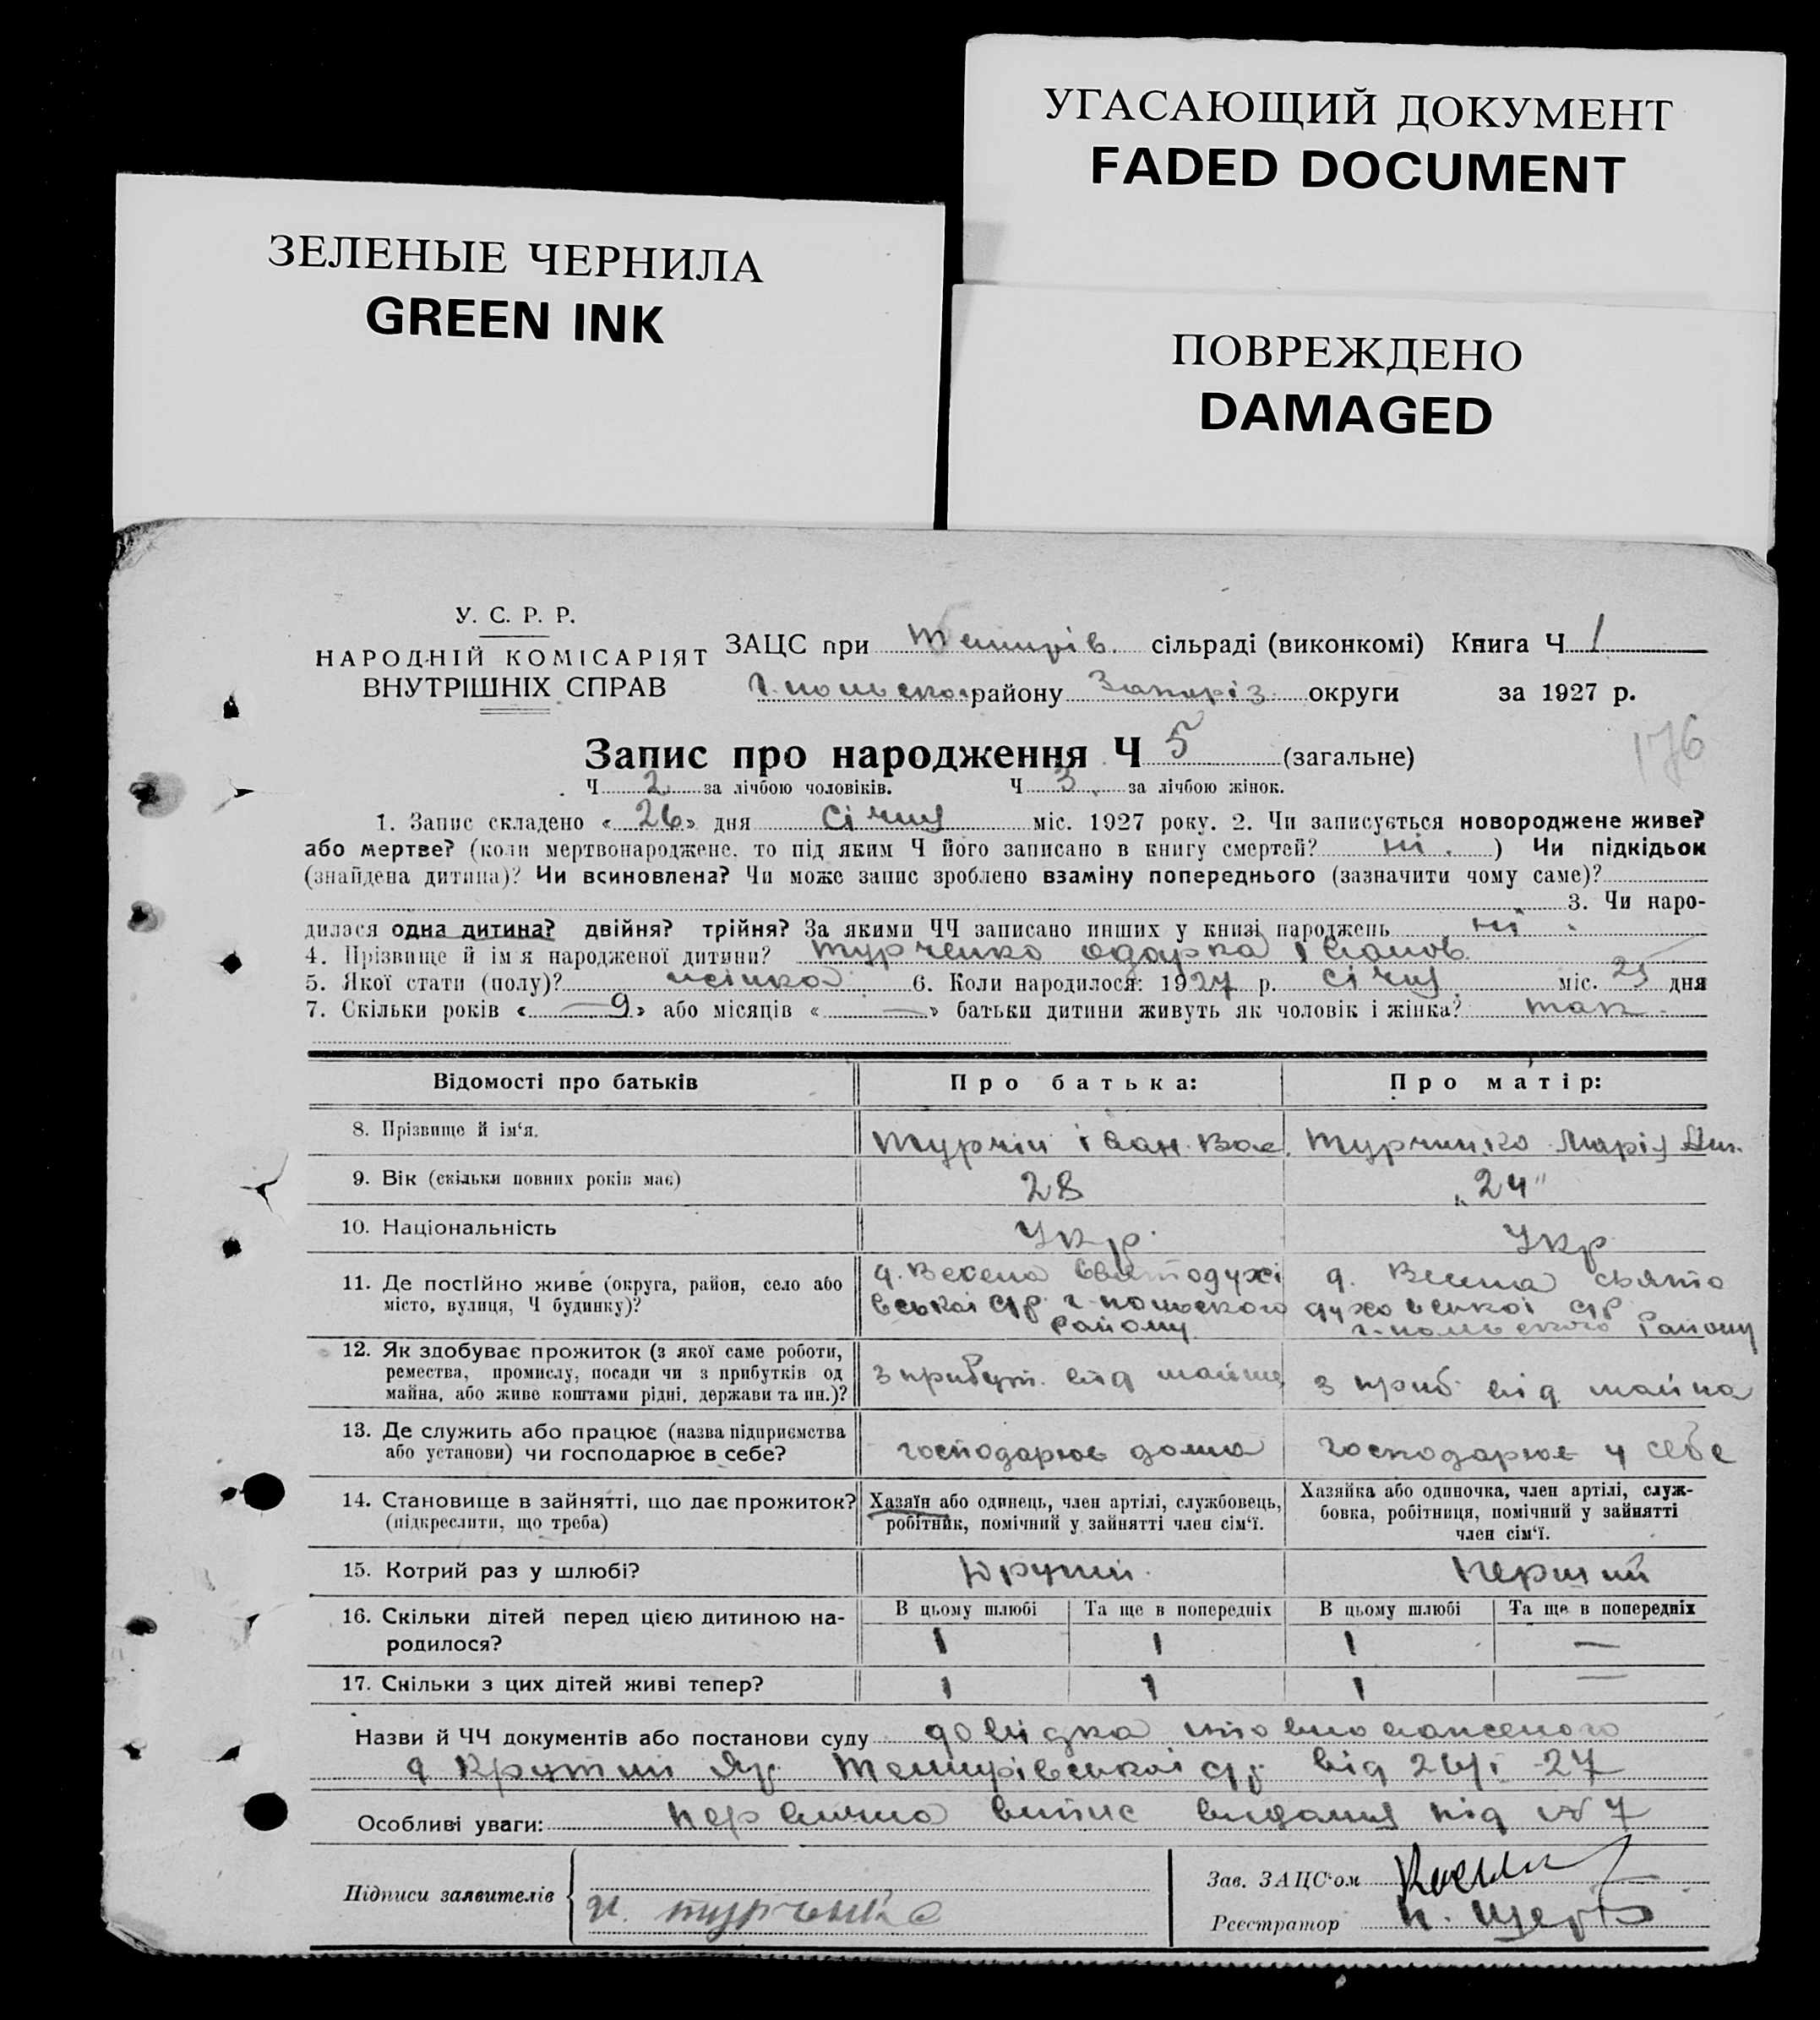 УГАСАЮЩИЙ ДОКУМЕНТ
FADED DOCUMENT
ЗЕЛЕНЫЕ ЧЕРНИЛА
GREEN INK
ПОВРЕЖДЕНО
DAMAGED
У. С. Р. Р.
НАРОДНІЙ КОМІСАРІЯТ
ВНУТРІШНІХ СПРАВ
ЗАЦС при сільраді (виконкомі) Книга Ч 1
району Запоріз округи за 1927 р.
176
Запис про народження Ч 5 (загальне)
Ч 2 за лічбою чоловіків. Ч 3 за лічбою жінок.
1. Запис складено « 26 » дня січня міс. 1927 року. 2. Чи записується новороджене живе?
або мертве? (коли мертвонароджене, то під яким Ч його записано в книгу смертей? ні . ) Чи підкідьок
(знайдена дитина)? Чи всиновлена? Чи може запис зроблено взаміну попереднього (зазначити чому саме)?
3. Чи наро-
дилася одна дитина? двійня? трійня? За якими ЧЧ записано инших у книзі народжень ні .
4. Прізвище й ім'я народженої дитини? Турченко Одарка Іванов.
5. Якої стати (полу)? жінка 6. Коли народилося: 1927 р. січня міс. 25 дня
7. Скільки років « 9 » або місяців « — » батьки дитини живуть як чоловік і жінка? так
Відомості про батьків Про батька: Про матір:
8. Прізвище й ім'я. Іван Марія
9. Вік (скільки повних років має) 28 „24"
10. Національність Укр. Укр
11. Де постійно живе (округа, район, село або
місто, вулиця, Ч будинку)?
району району
12. Як здобуває прожиток (з якої саме роботи,
ремества, промислу, посади чи з прибутків од
майна, або живе коштами рідні, держави та ин.)?
з прибут. від майна з приб від майна
13. Де служить або працює (назва підприємства
або установи) чи господарює в себе?
господарює дома господарює у себе
14. Становище в зайнятті, що дає прожиток?
(підкреслити, що треба)
Хазяїн або одинець, член артілі, службовець,
робітник, помічний у зайнятті член сім'ї.
Хазяйка або одиночка, член артілі, служ-
бовка, робітниця, помічний у зайнятті
член сім'ї.
15. Котрий раз у шлюбі? Перший
16. Скільки дітей перед цією дитиною на-
родилося?
В цьому шлюбі Та ще в попередніх В цьому шлюбі Та ще в попередніх
1 1 1 —
17. Скільки з цих дітей живі тепер? 1 1 1 —
Назви й ЧЧ документів або постанови суду довідка
від 27
Особливі уваги: первична випис видання під № 7
Підписи заявителів
Турченко
Зав. ЗАЦС'ом
Реєстратор